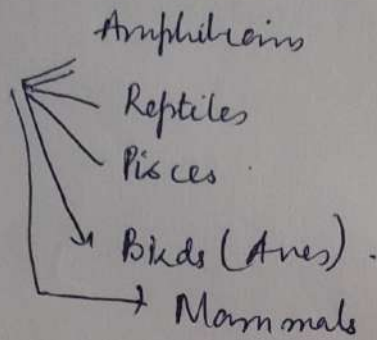 Amphibians
Reptiles
Pisces
Birds (Aves).
Mammals